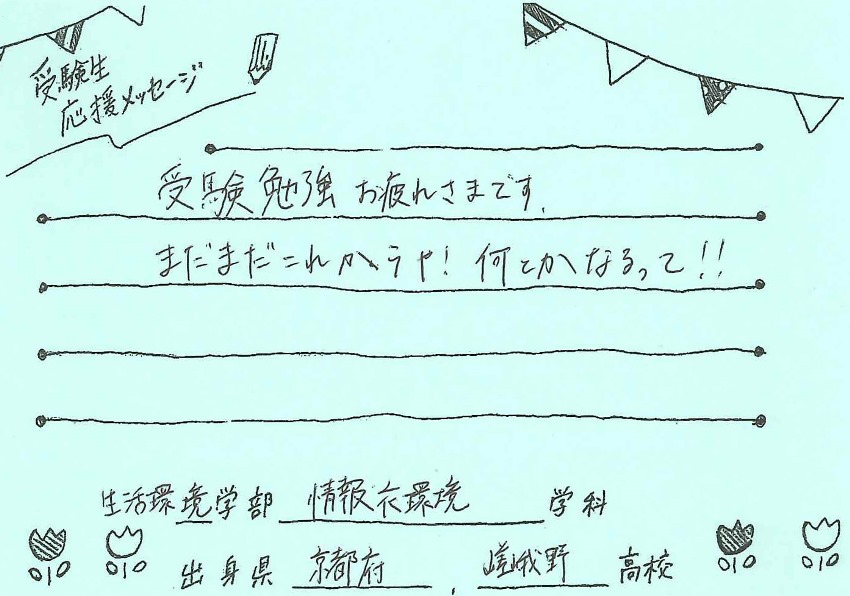 受験生
応援メッセージ
受験勉強 お疲れさまです.
まだまだこれからや! 何とかなるって!!
生活環境学部 情報衣環境 学科
出身県 京都府 , 嵯峨野 高校